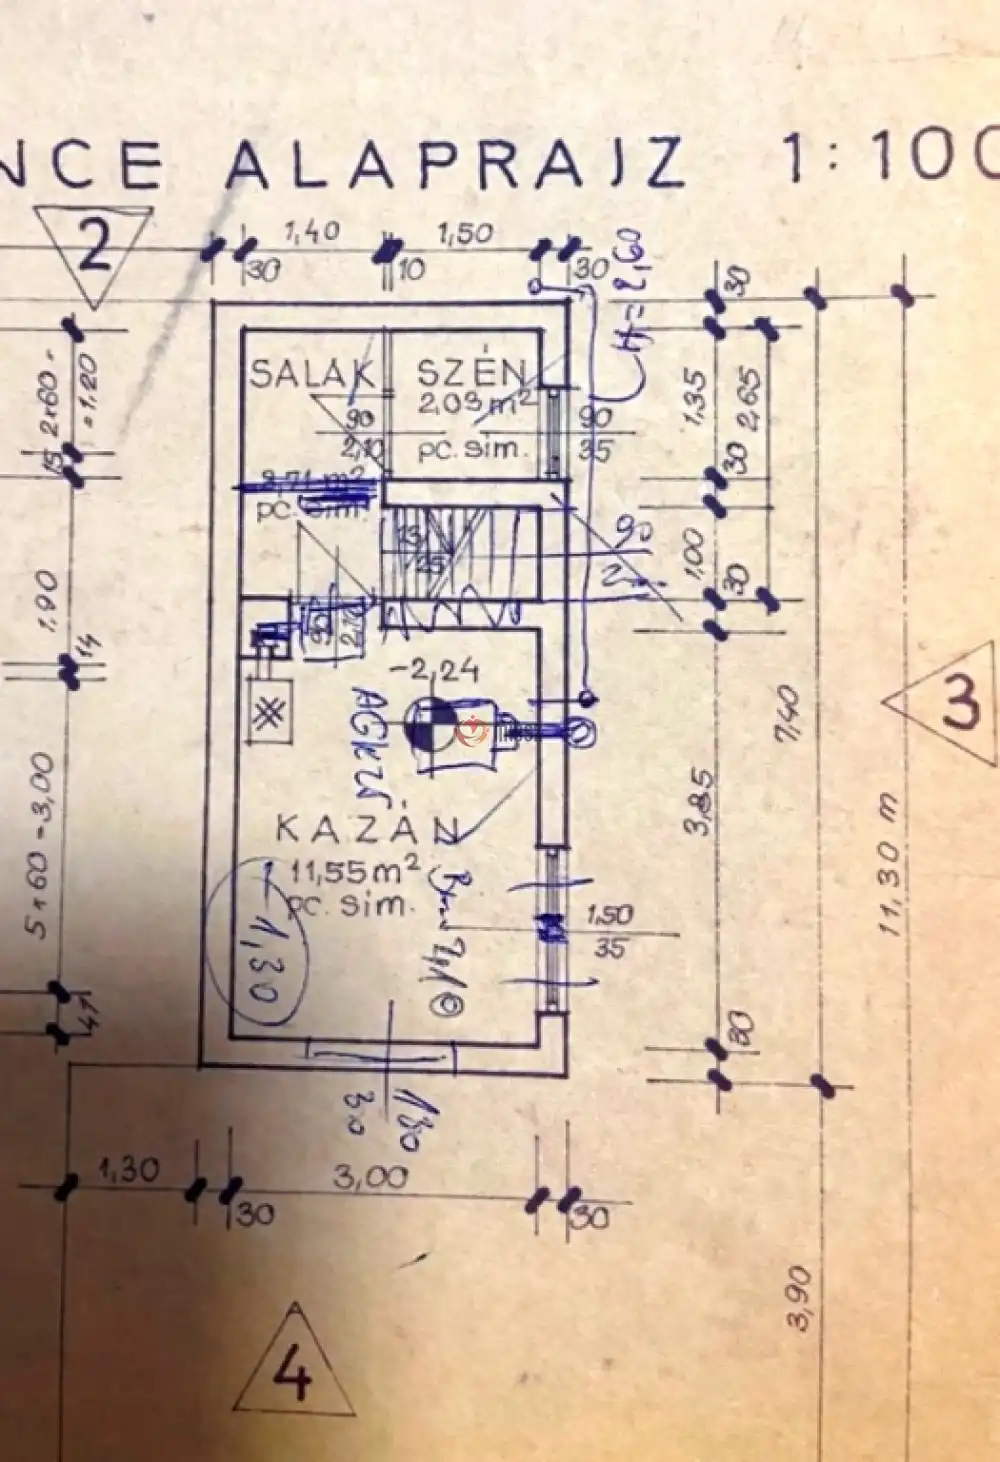 NCE ALAPRAJZ 1:100
2
1,40 1,50
30 10 30
H=2,60
30
SALAK SZÉN
2,03 m²
90
2,10
pc. sim.
90
35
2x60=
=1,20
15
1,35
2,65
30
2,71 m²
pc. sim.
15
25
90
1,00
30
1,90
14
90
2,10
-2,24
3
7,40
3,85
11,30 m
5x60=3,00
KAZÁN
11,55 m²
pc. sim.
1,30
1,50
35
41
30
1,30 3,00
30 30
3,90
4